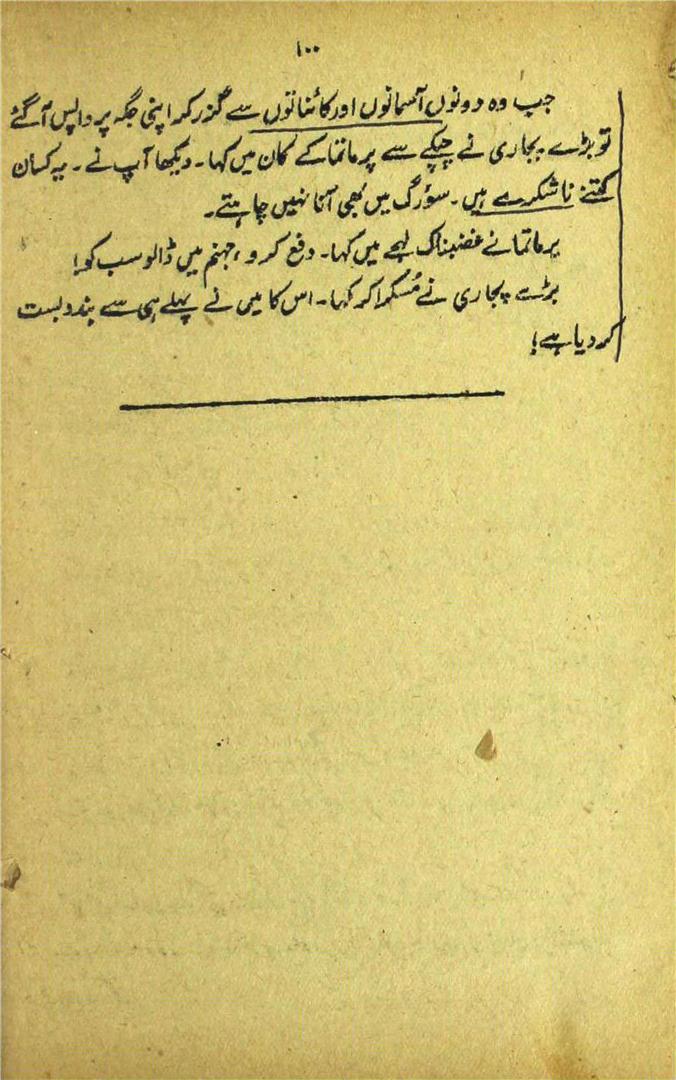 ۱۰۰
جب وہ دونوں آسمانوں اور کائناتوں سے گزر کر اپنی جگہ پر واپس آگئے
تو بڑے پجاری نے چپکے سے پرماتما کے کان میں کہا۔ دیکھا آپ نے۔ یہ کسان
کتنے ناشکرے ہیں۔ سؤرگ میں بھی آنا نہیں چاہتے۔
پرماتما نے غضبناک لہجے میں کہا۔ دفع کرو، جہنم میں ڈالو سب کو!
بڑے پجاری نے مُسکرا کر کہا۔ اس کا میں نے پہلے ہی سے بندوبست
کر دیا ہے!